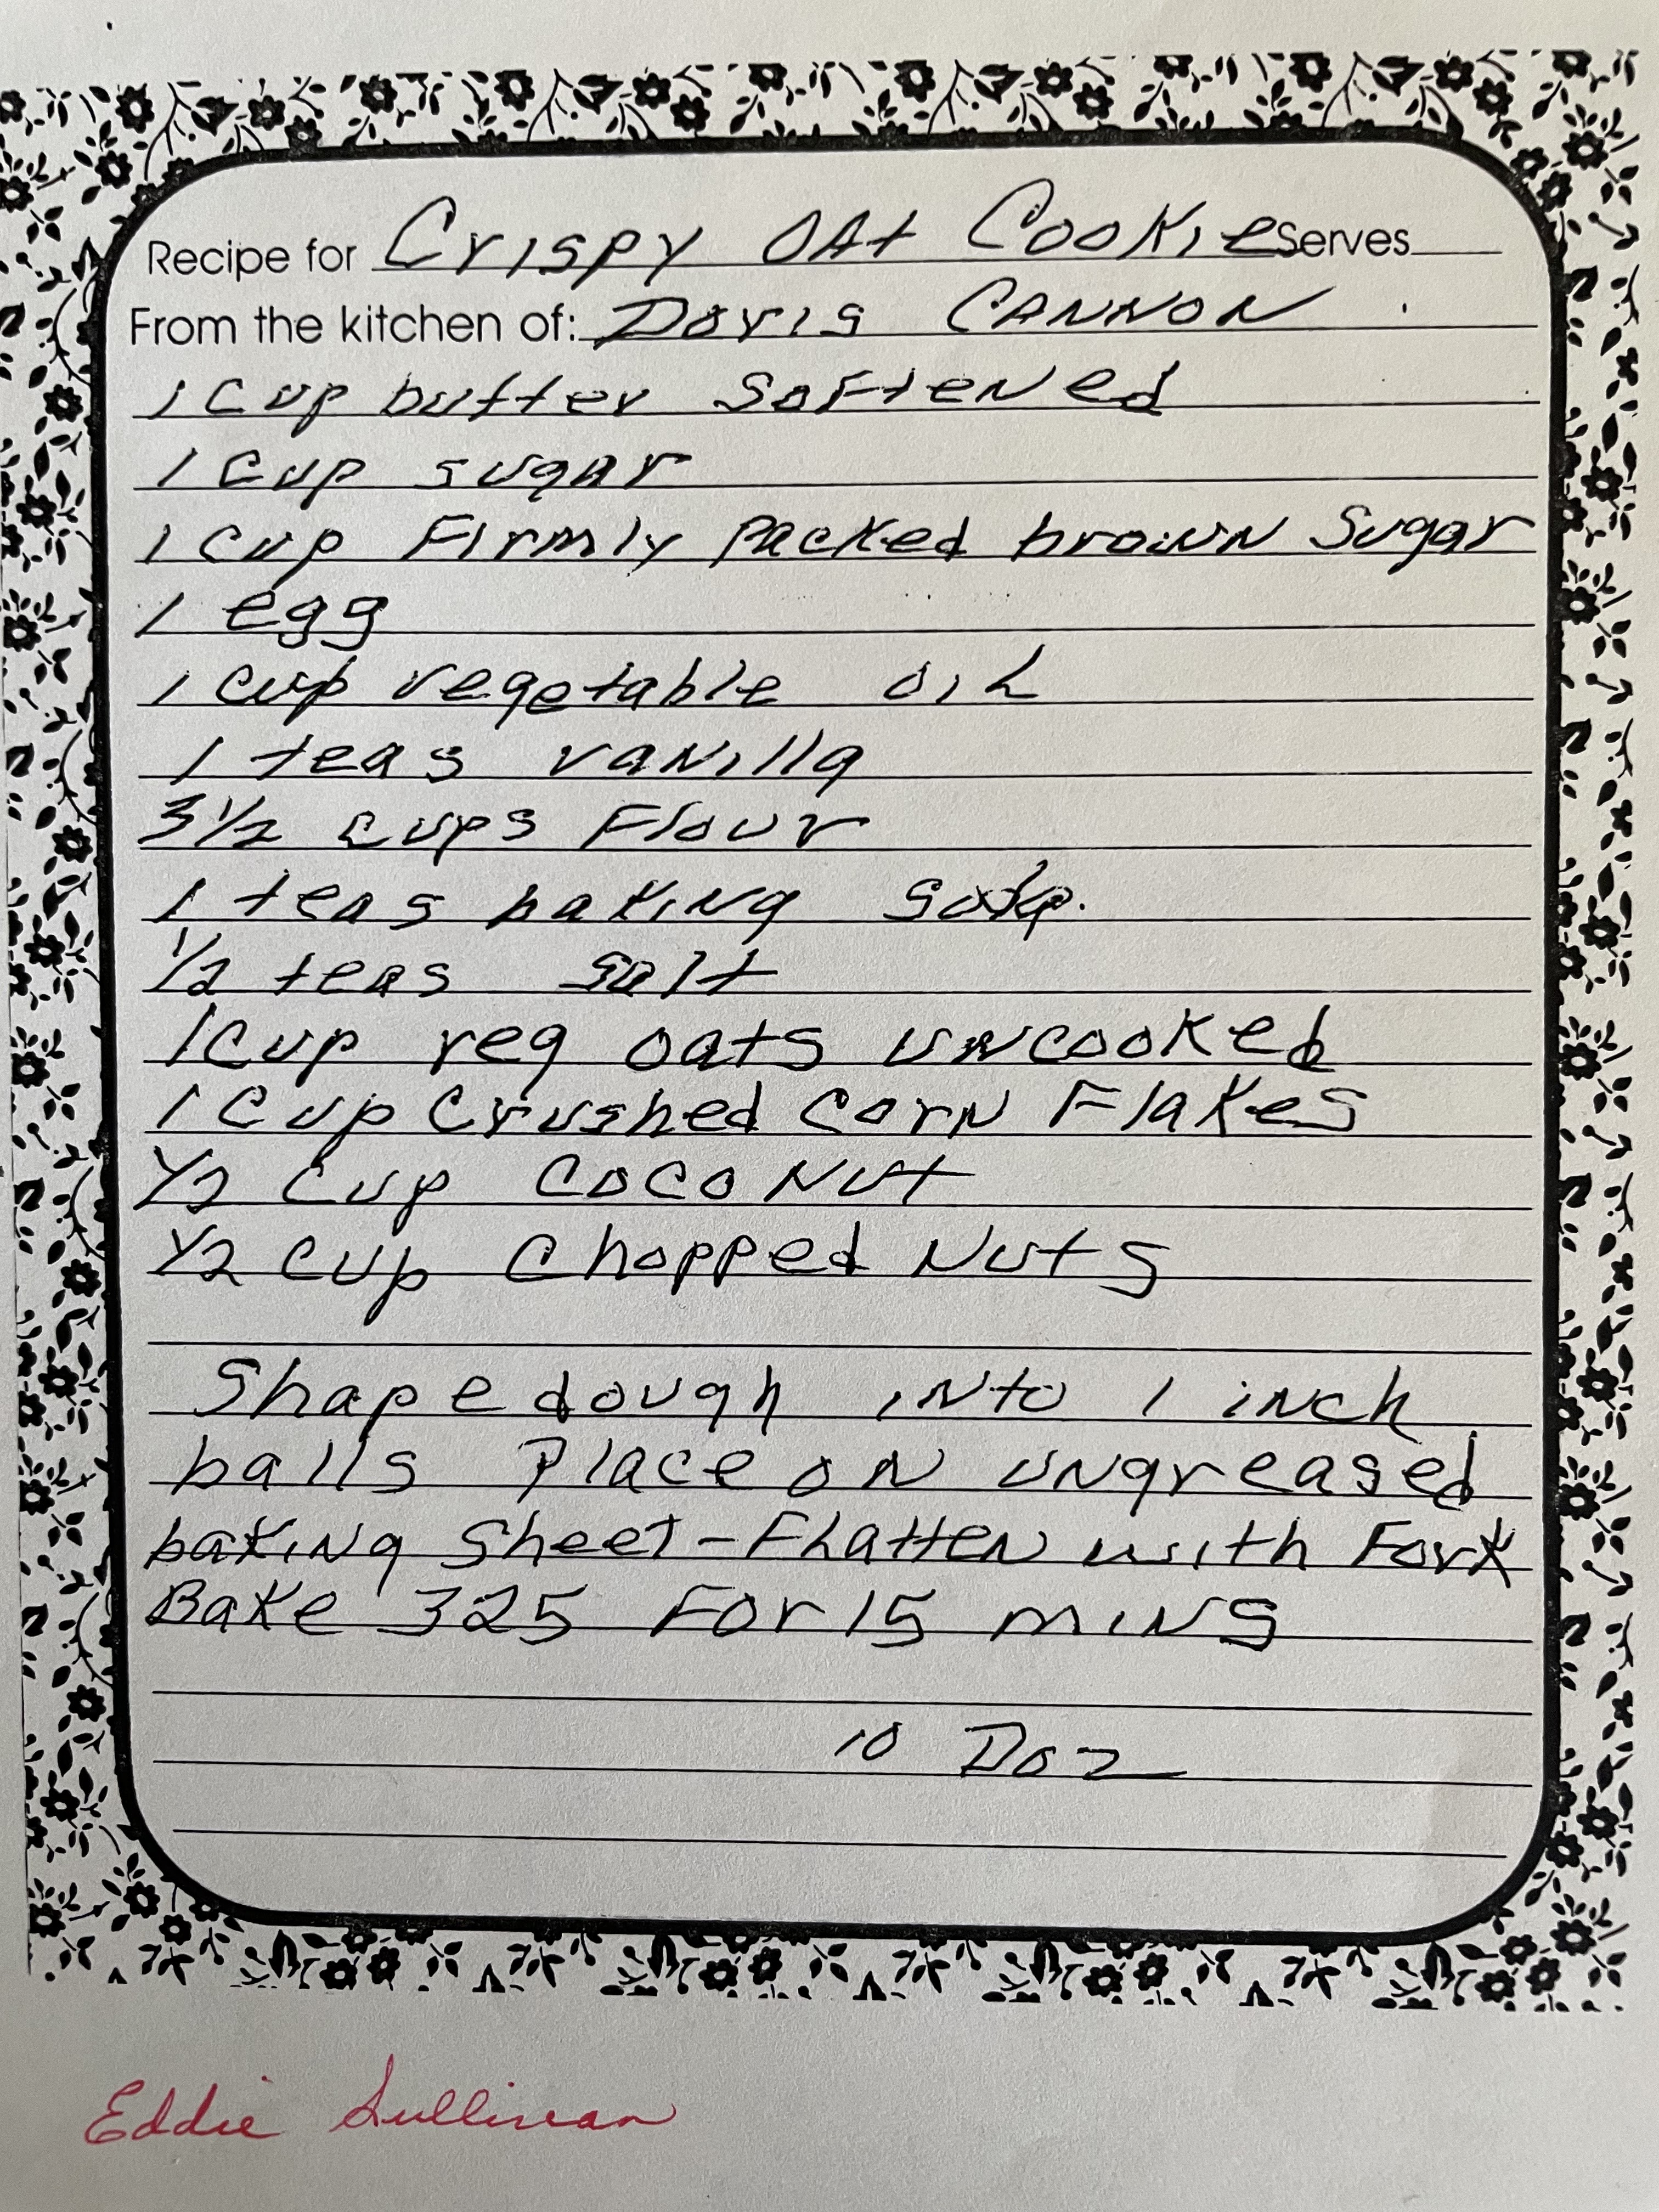 Recipe for Crispy Oat Cookie Serves
From the kitchen of: Doris Cannon
1 cup butter softened
1 cup sugar
1 cup Firmly Packed brown Sugar
1 egg
1 cup vegetable oil
1 teas vanilla
3 1/2 cups Flour
1 teas baking soda.
1/2 teas salt
1 cup reg oats uncooked
1 cup crushed corn Flakes
1/2 cup coconut
1/2 cup chopped Nuts
Shape dough into 1 inch
balls Place on ungreased
baking sheet - Flatten with Fork
Bake 325 For 15 mins
10 Doz
Eddie Sullivan